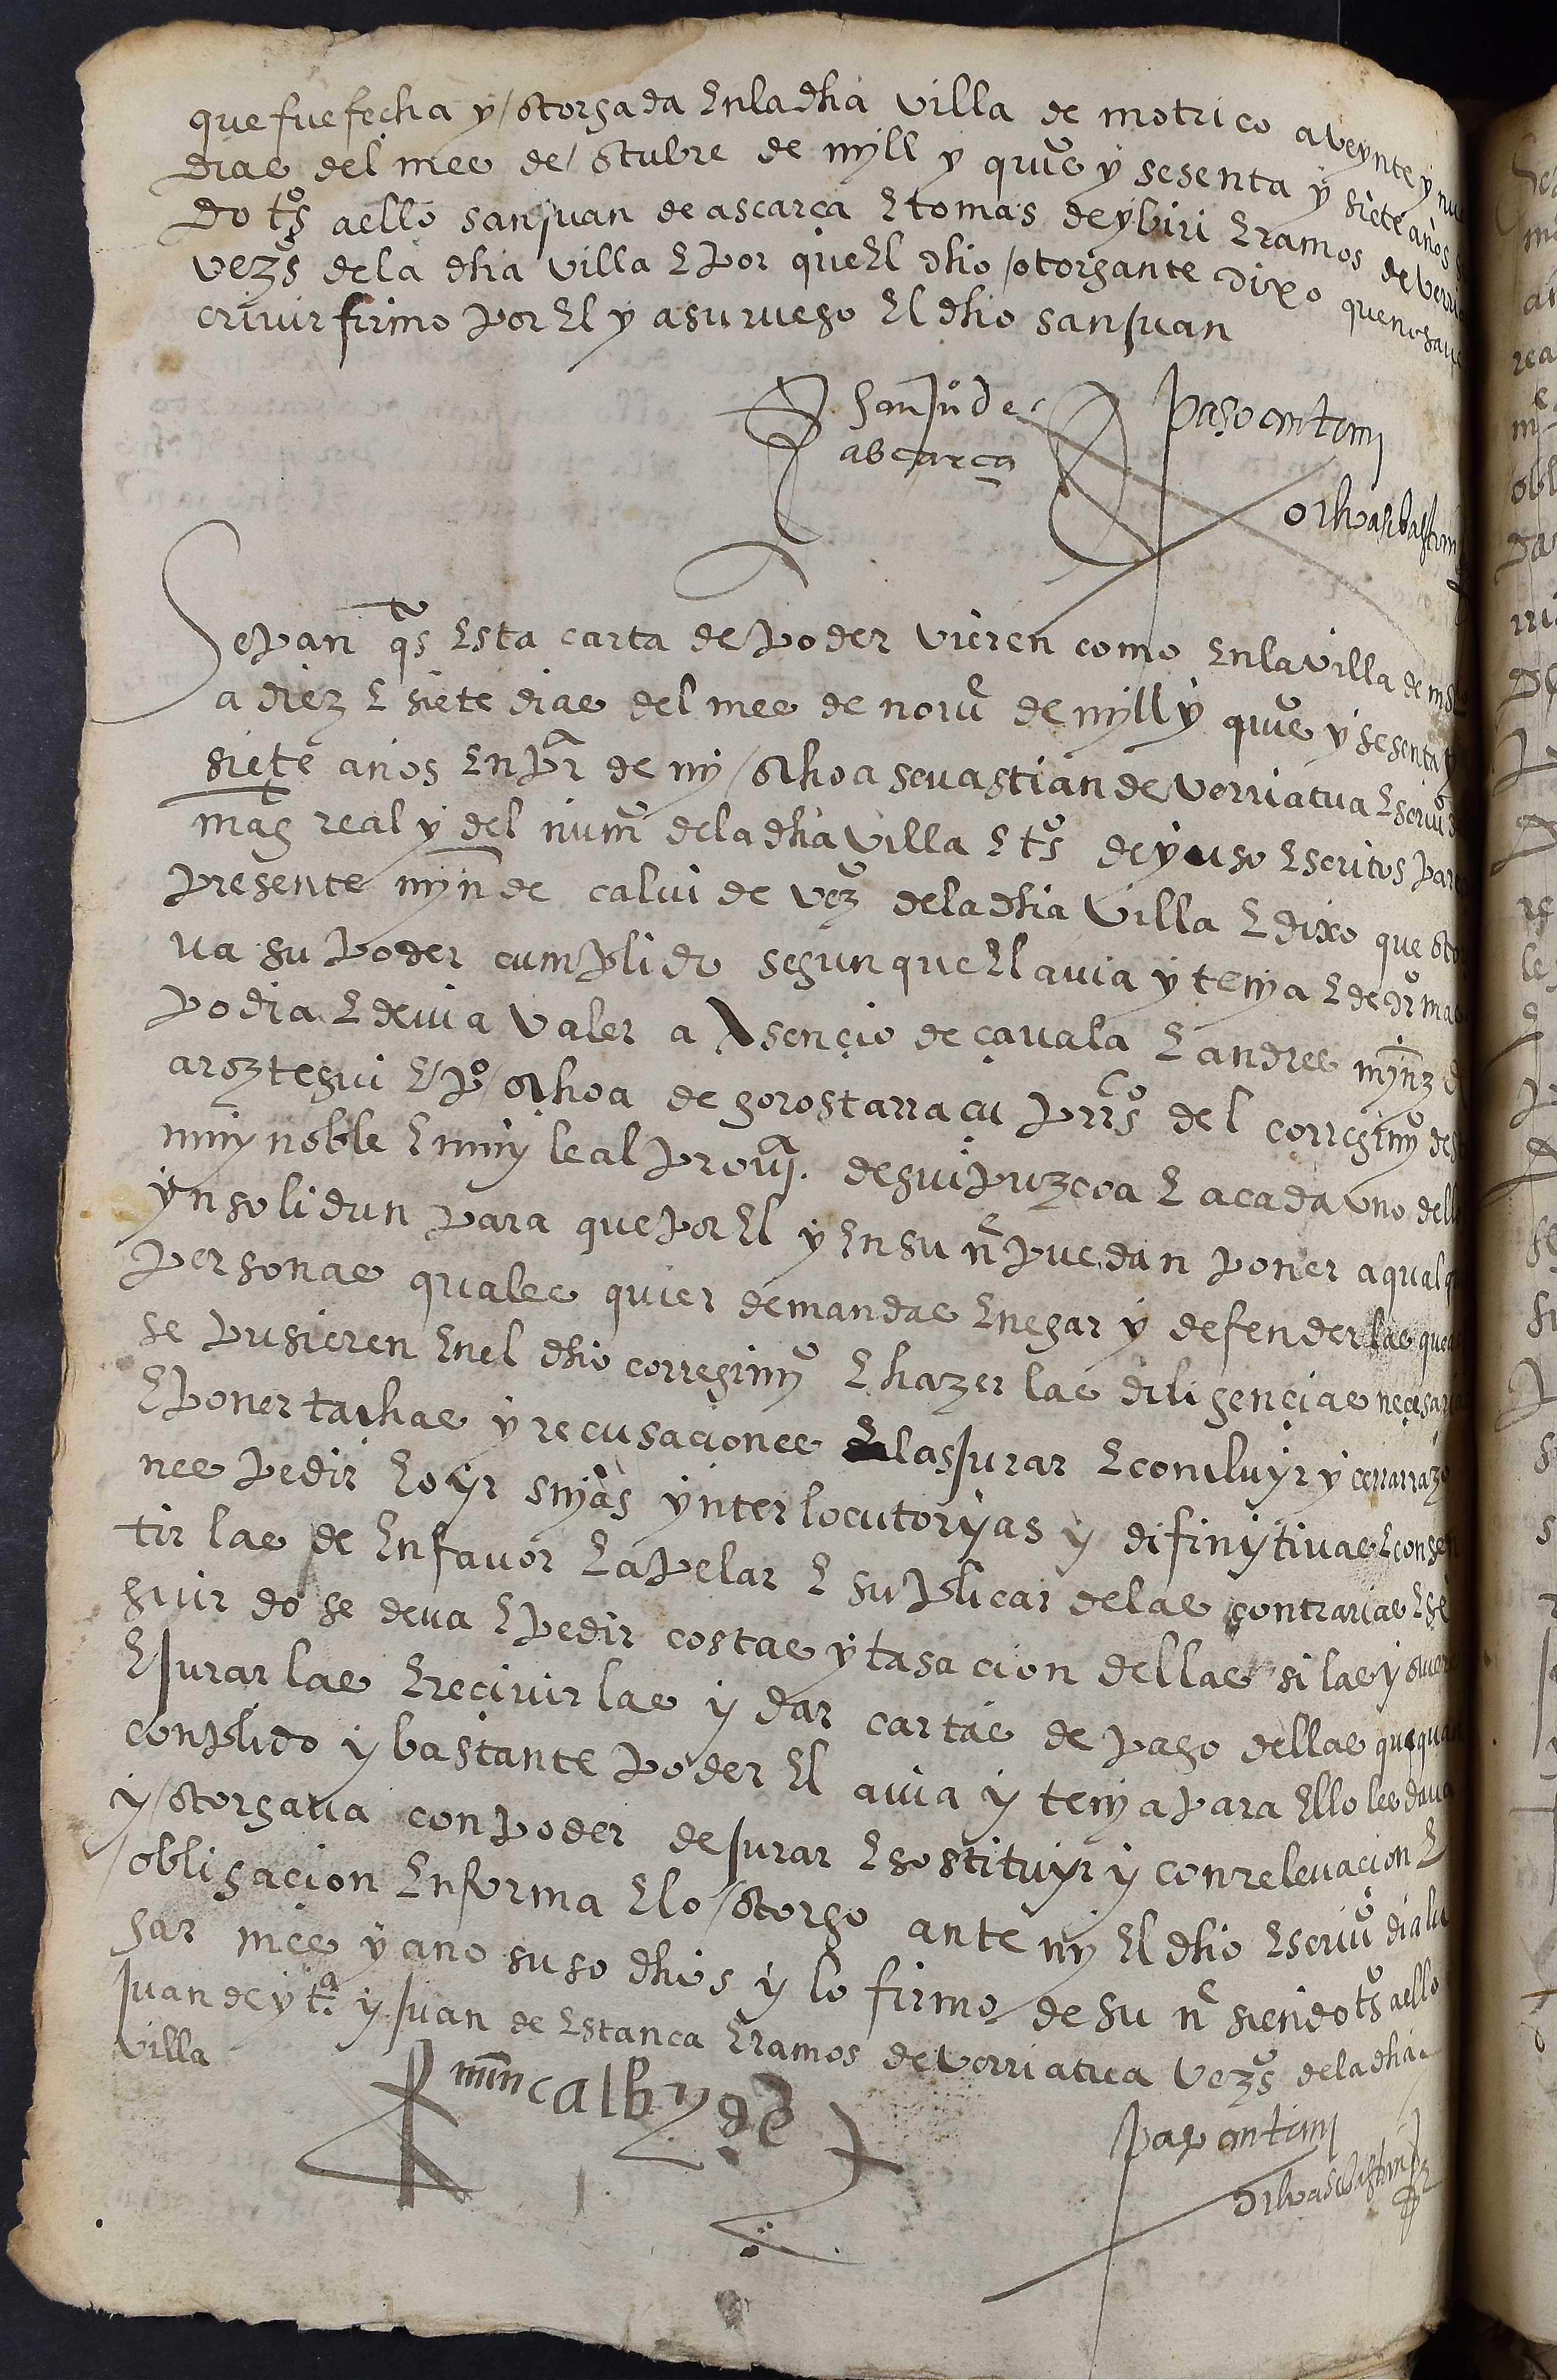 que fue fecha y / otorgada en la dha villa de motrico a veynte y nu
dias del mes de / otubre de myll y quis y sesenta y siete años s
do tos a ello san juan de ascarça e tomas de ybiri e ramos de verri
vezos de la dha villa e por que el dho / otorgante dixo que no save
crivir firmo por el y a su ruego el dho san juan
san juo de
ascarça
paso ante mi
ochoa sebastian
Sepan qtos esta carta de poder vieren como en la villa de
a diez e siete dias del mes de novie de myll y quis y sesenta y
siete años en pra de my / ochoa sevastian de verriatua escrivo
magt real y del numo de la dha villa e tos de yuso escritos pare
presente myn de calvi de vezo de la dha villa e dixo que oto
va su poder cumplido segun que el avia y tenya e de dro mas
podia e devia valer a Asençio de çavala e andres mynz d
aroztegui e / po / ochoa de gorostarraçu prcos del corregimyo de
muy noble e muy leal prova. de guipuzcoa e a cada uno dell
yn solidun para que por el y en su ne puedan poner a qualq
personas quales quier demandas e negar y defender las que
se pusieren en el dho corregimyo e hazer las diligençias neçesar
e poner tachas y recusaçiones e las jurar e concluyr y cerrar razo
nes pedir e oyr snyas ynterlocutoryas y difinytivas e consen
tir las de en favor e apelar e suplicar de las contrarias e se
guir do se deva e pedir costas y tasaçion dellas si las y ouiere
e jurar las e reçivir las y dar cartas de pago dellas que quan
conplido y bastante poder el avia y tenya para ello les dava
y / otorgava con poder de jurar e sostituyr y con relevaçion e
/ obligaçion en forma e lo / otorgo ante my el dho escrivo dia lu
gar mes y ano suso dhos y lo firmo de su ne siendo tos a ello
juan de yta. y juan de estanca e ramos de verriatua vezos de la dha
villa
mm calbyde
paso ante mi
ochoa sebastian